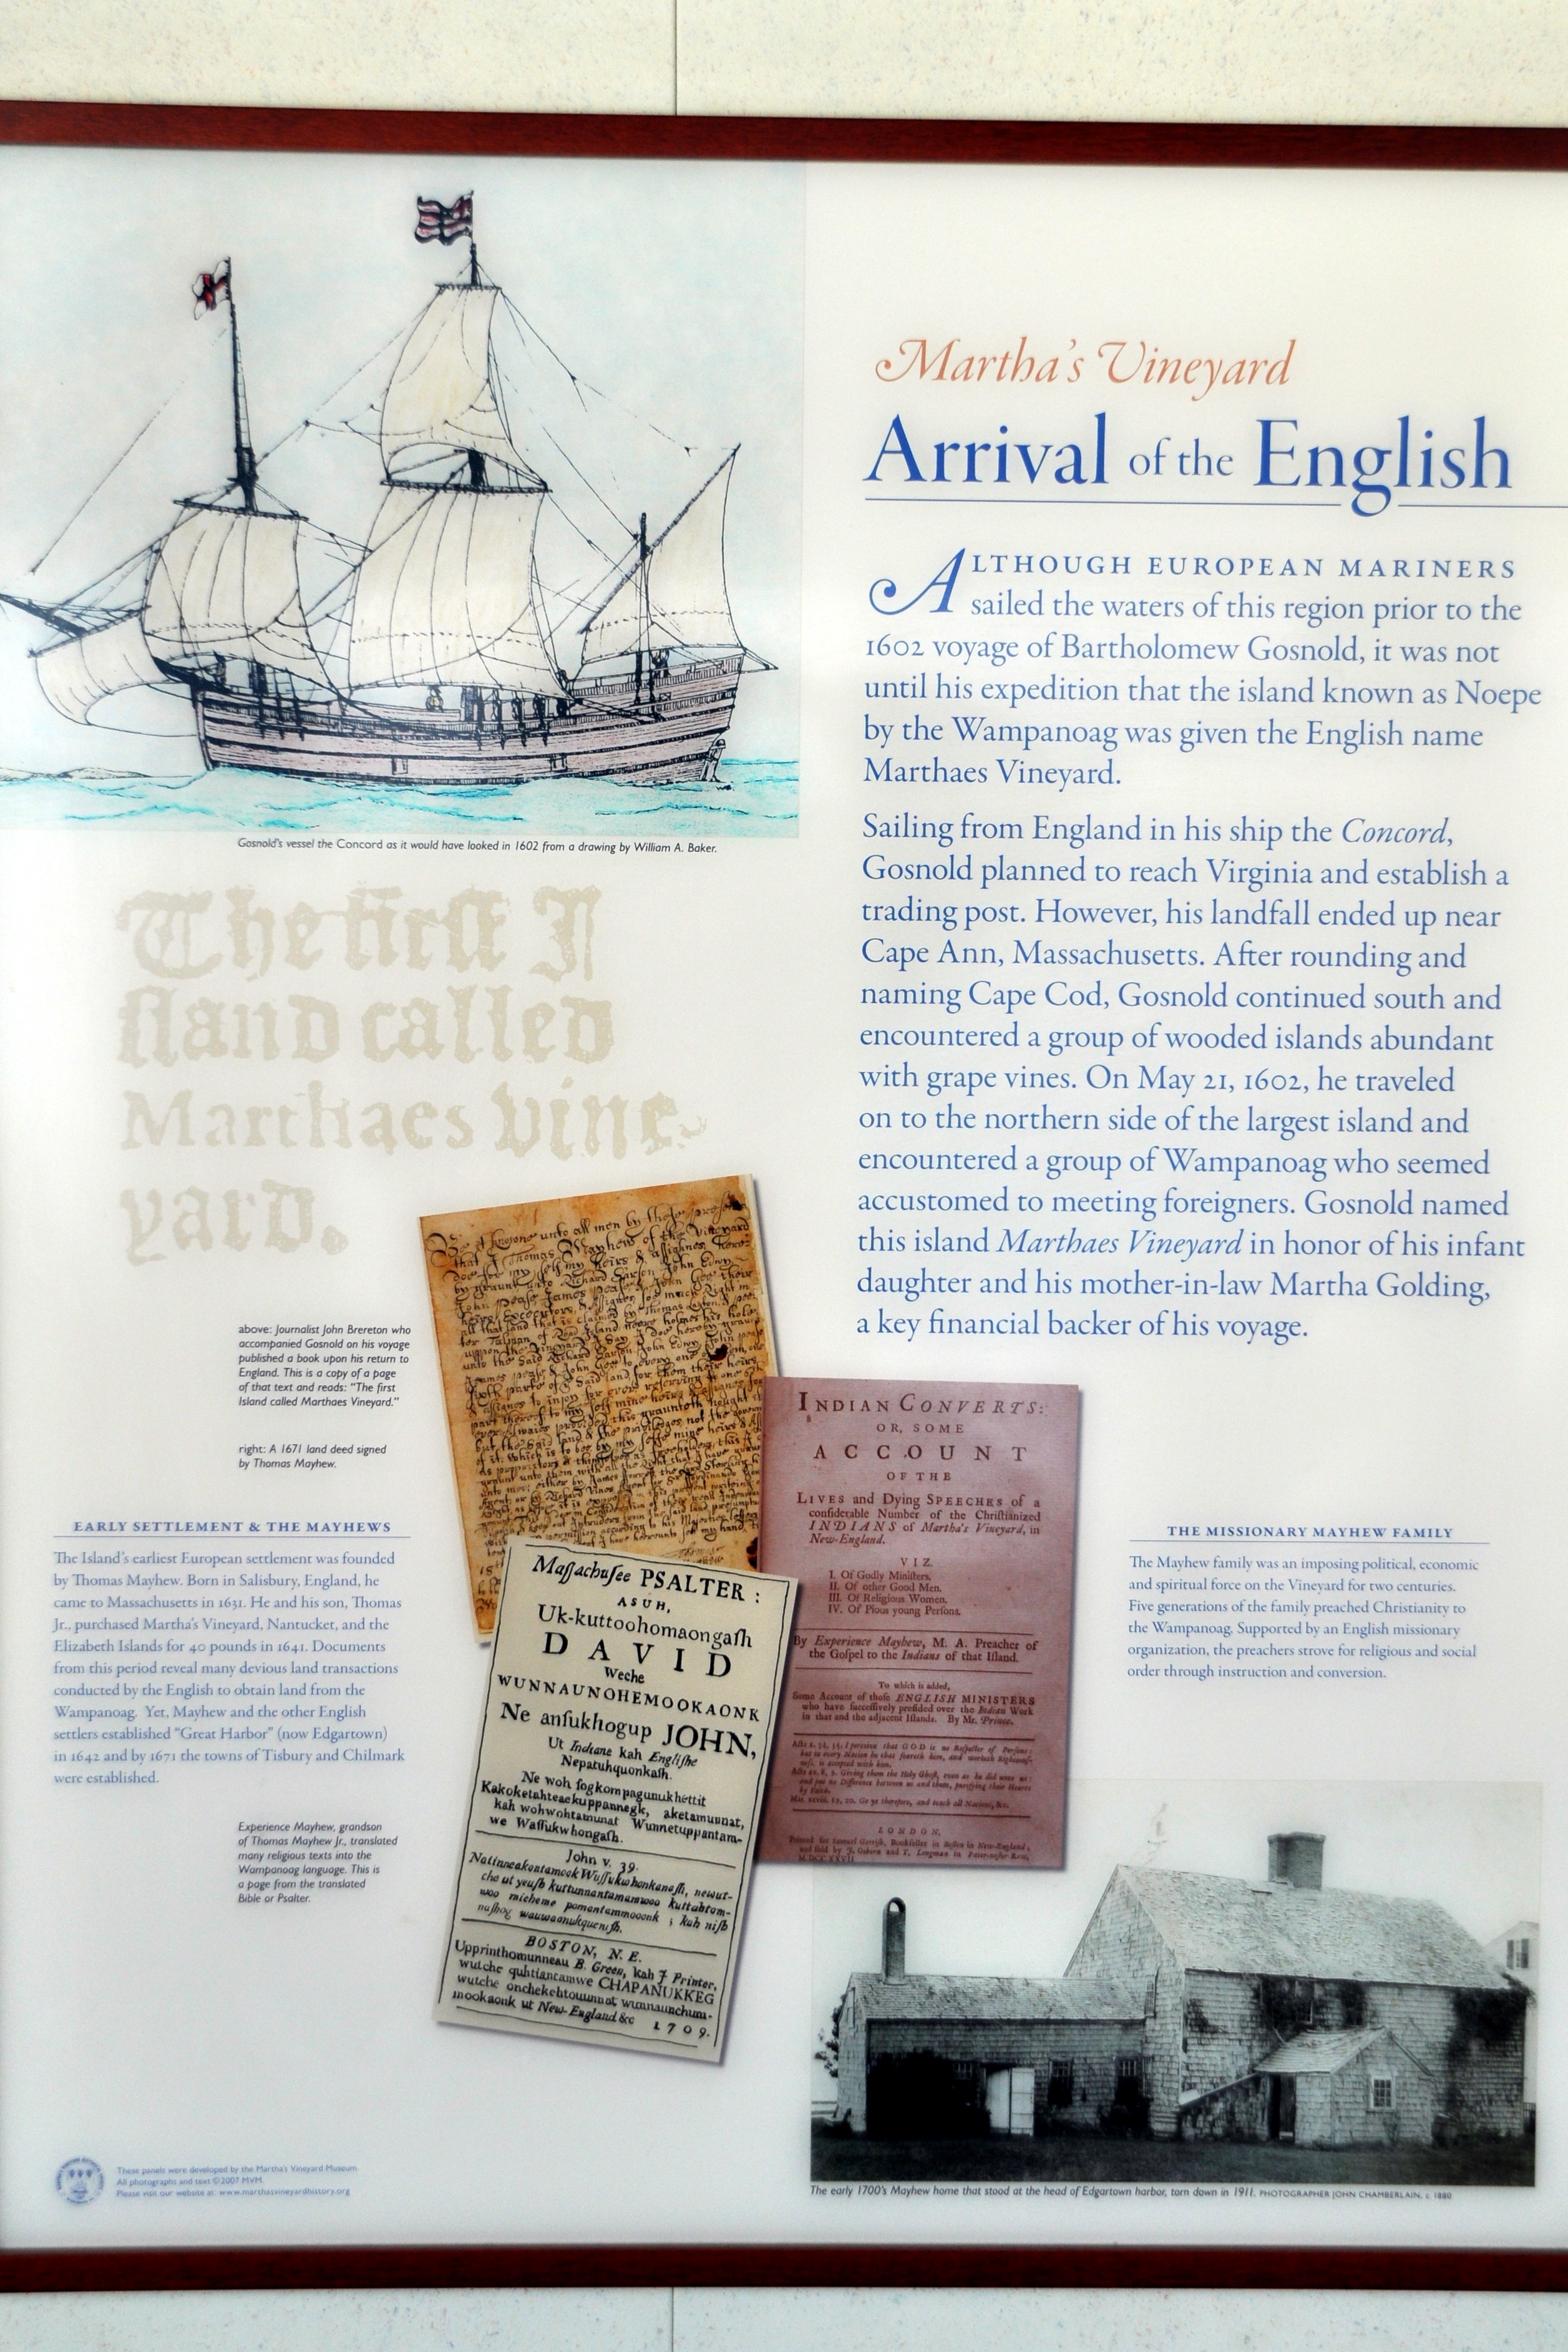 Martha's Vineyard
Arrival of the English
ALTHOUGH EUROPEAN MARINERS
sailed the waters of this region prior to the
1602 voyage of Bartholomew Gosnold, it was not
until his expedition that the island known as Noepe
by the Wampanoag was given the English name
Marthaes Vineyard.
Sailing from England in his ship the Concord,
Gosnold planned to reach Virginia and establish a
trading post. However, his landfall ended up near
Cape Ann, Massachusetts. After rounding and
naming Cape Cod, Gosnold continued south and
encountered a group of wooded islands abundant
with grape vines. On May 21, 1602, he traveled
on to the northern side of the largest island and
encountered a group of Wampanoag who seemed
accustomed to meeting foreigners. Gosnold named
this island Marthaes Vineyard in honor of his infant
daughter and his mother-in-law Martha Golding,
a key financial backer of his voyage.
Gosnold's vessel the Concord as it would have looked in 1602 from a drawing by William A. Baker.
The first I
sland called
Marthaes vine-
yard.
above: Journalist John Brereton who
accompanied Gosnold on his voyage
published a book upon his return to
England. This is a copy of a page
of that text and reads: "The first
Island called Marthaes Vineyard."
right: A 1671 land deed signed
by Thomas Mayhew.
EARLY SETTLEMENT & THE MAYHEWS
The Island's earliest European settlement was founded
by Thomas Mayhew. Born in Salisbury, England, he
came to Massachusetts in 1631. He and his son, Thomas
Jr., purchased Martha's Vineyard, Nantucket, and the
Elizabeth Islands for 40 pounds in 1641. Documents
from this period reveal many devious land transactions
conducted by the English to obtain land from the
Wampanoag. Yet, Mayhew and the other English
settlers established "Great Harbor" (now Edgartown)
in 1642 and by 1671 the towns of Tisbury and Chilmark
were established.
Experience Mayhew, grandson
of Thomas Mayhew Jr., translated
many religious texts into the
Wampanoag language. This is
a page from the translated
Bible or Psalter.
Be it knowne unto all men by these
that I Thomas Mayhew of the Vineyard
Maſſachuſee PSALTER:
ASUH,
Uk-kuttoohomaongaſh
DAVID
Weche
WUNNAUNOHEMOOKAONK
Ne anſukhogup JOHN,
Ut Indiane kah Engliſhe
Nepatuhquonkaſh.
Ne woh ſogkompagunukhettit
Kakoketahteaekuppannegk, aketamunnat,
kah wohwohtamunat Wunnetuppantam-
we Waſſukwhongaſh.
John v. 39.
Natinneakontamook Wuſſukwhonkanaſh, newut-
che ut yeuſh kuttunnantamumwoo kuttahtom-
woo micheme pomantammooonk ; kah niſh
naſhog wauwaonukqueniſh.
BOSTON, N. E.
Upprinthomunneau B. Green, kah J Printer,
wutche quhtiantamwe CHAPANUKKEG
wutche onchekehtouunnat wunnaunchum-
mookaonk ut New-England &c 1709.
INDIAN CONVERTS:
OR, SOME
ACCOUNT
OF THE
LIVES and Dying SPEECHES of a
conſiderable Number of the Chriſtianized
INDIANS of Martha's Vineyard, in
New-England.
VIZ.
I. Of Godly Miniſters.
II. Of other Good Men.
III. Of Religious Women.
IV. Of Pious young Perſons.
By Experience Mayhew, M. A. Preacher of
the Goſpel to the Indians of that Iſland.
To which is added,
Some Account of thoſe ENGLISH MINISTERS
who have ſucceſſively preſided over the Indian Work
in that and the adjacent Iſlands. By Mr. Prince.
Acts x. 34, 35. I perceive that GOD is no Reſpecter of Perſons:
but in every Nation he that feareth him, and worketh Righteouſ-
neſs, is accepted with him.
Acts xv. 8, 9. Giving them the Holy Ghoſt, even as he did unto us:
and put no Difference between us and them, purifying their Hearts
by Faith.
Mat. xxviii. 19, 20. Go ye therefore, and teach all Nations, &c.
LONDON,
Printed for Samuel Gerriſh, Bookſeller in Boſton in New-England;
and ſold by J. Osborn and T. Longman in Pater-noſter-Row,
MDCCXXVII
THE MISSIONARY MAYHEW FAMILY
The Mayhew family was an imposing political, economic
and spiritual force on the Vineyard for two centuries.
Five generations of the family preached Christianity to
the Wampanoag. Supported by an English missionary
organization, the preachers strove for religious and social
order through instruction and conversion.
The early 1700's Mayhew home that stood at the head of Edgartown harbor, torn down in 1911. PHOTOGRAPHER JOHN CHAMBERLAIN, c. 1880
These panels were developed by the Martha's Vineyard Museum.
All photographs and text ©2007 MVM.
Please visit our website at: www.marthasvineyardhistory.org